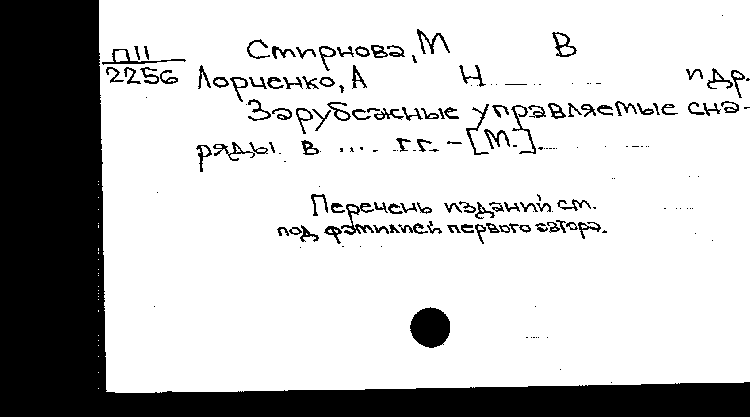 П11 Смирнова, М В
2256 Лорченко, А Н и др.
Зарубежные управляемые сна-
ряды в .... г.г. – [М.].
Перечень изданий см.
под фамилией первого автора.